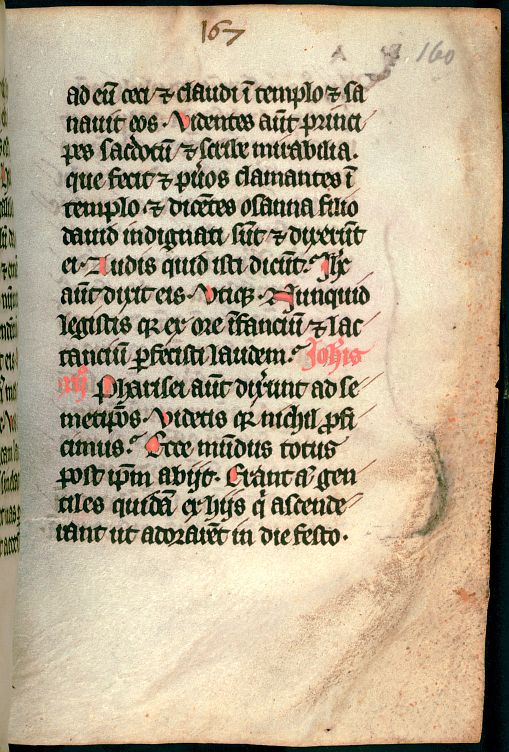 167
160
ad eu̅ ceci ⁊ claudi i̅ templo ⁊ sa
nauit eos. Videntes au̅t princi
pes sac̾dotu̅ ⁊ scribe mirabilia.
que fecit ⁊ pu̾os clamantes i̅
templo ⁊ dice̅tes osanna filio
dauid indignati su̅t ⁊ dixeru̅t
ei. Audis quid isti dicu̅t. Ih̅c
au̅t dixit eis. Vtiqꝫ. Nunquid
legistis qꝛ ex ore i̅fanciu̅ ⁊ lac
tanciu̅ ꝑfecisti laudem. Joh̅is
Pharisei au̅t dixe̾unt ad se
metip̅os. Videtis qꝛ nichil ꝓfi
cimus. Ecce mu̅dus totus
post ip̅m abijt. Erant a̅ gen
tiles quida̅ ex hijs q̅ ascende
rant ut adorare̅t in die festo.